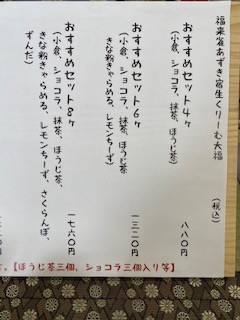 福来雀あずき宮生くりーむ大福
(税込)
おすすめセット4ヶ 八八〇円
(小倉、ショコラ、抹茶、ほうじ茶)
おすすめセット6ヶ 一三二〇円
(小倉、ショコラ、抹茶、ほうじ茶
きな粉きゃらめる、レモンちーず)
おすすめセット8ヶ 一七六〇円
(小倉、ショコラ、抹茶、ほうじ茶、
きな粉きゃらめる、レモンちーず、さくらんぼ、
ずんだ)
す。【ほうじ茶三個、ショコラ三個入り等】